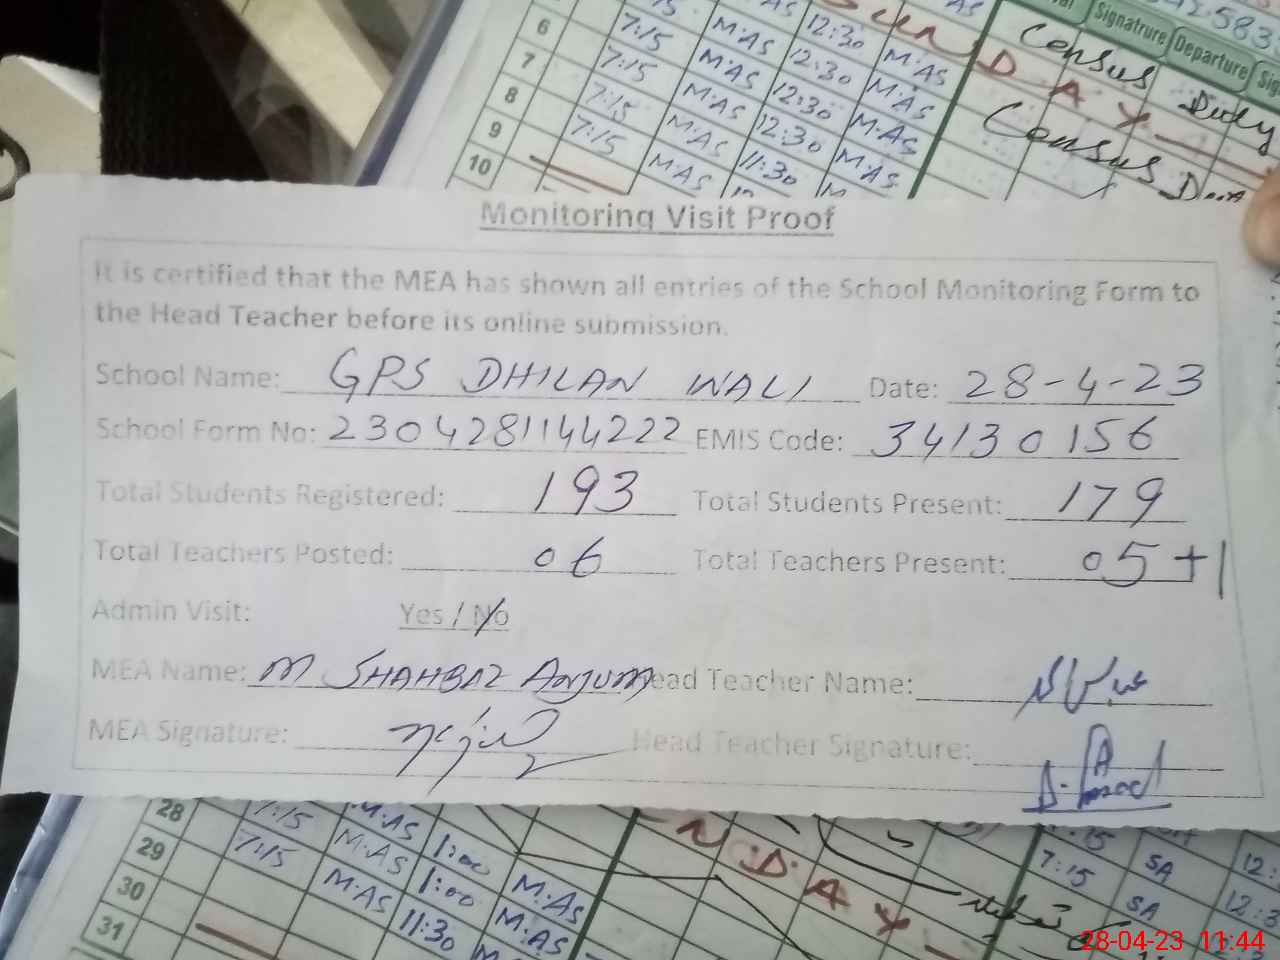 Signatrure Departure
Census Duty
6 7:15 M·AS 12:30 M·AS
7 7:15 M·AS 12:30 M·AS D A Y
8 7:15 M·AS 12:30 M·AS Census
9 7:15 M·AS 12:30 M·AS
10 M·AS 11:30
Monitoring Visit Proof
It is certified that the MEA has shown all entries of the School Monitoring Form to
the Head Teacher before its online submission.
School Name: GPS DHILAN WALI Date: 28-4-23
School Form No: 2304281144222 EMIS Code: 34130156
Total Students Registered: 193 Total Students Present: 179
Total Teachers Posted: 06 Total Teachers Present: 05+1
Admin Visit: Yes / No
MEA Name: M SHAHBAZ Anjum Head Teacher Name:
MEA Signature: Head Teacher Signature:
28 7:15 M·AS 1:00 M·AS
29 7:15 M·AS 1:00 M·AS D A Y 7:15 SA
30 M·AS 11:30 SA
31
28-04-23 11:44